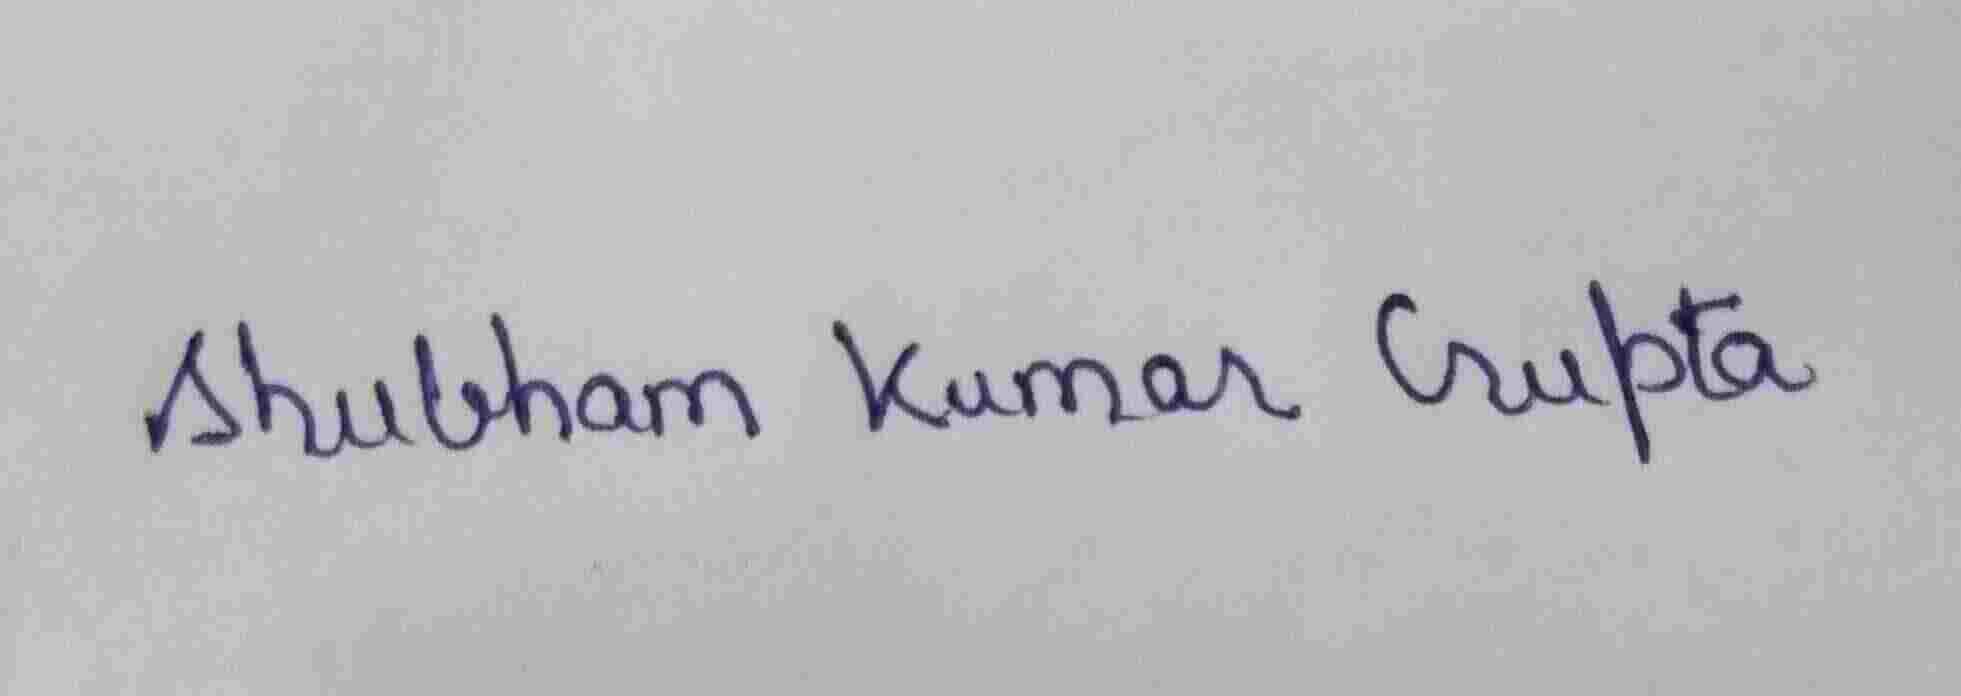 Shubham Kumar Gupta